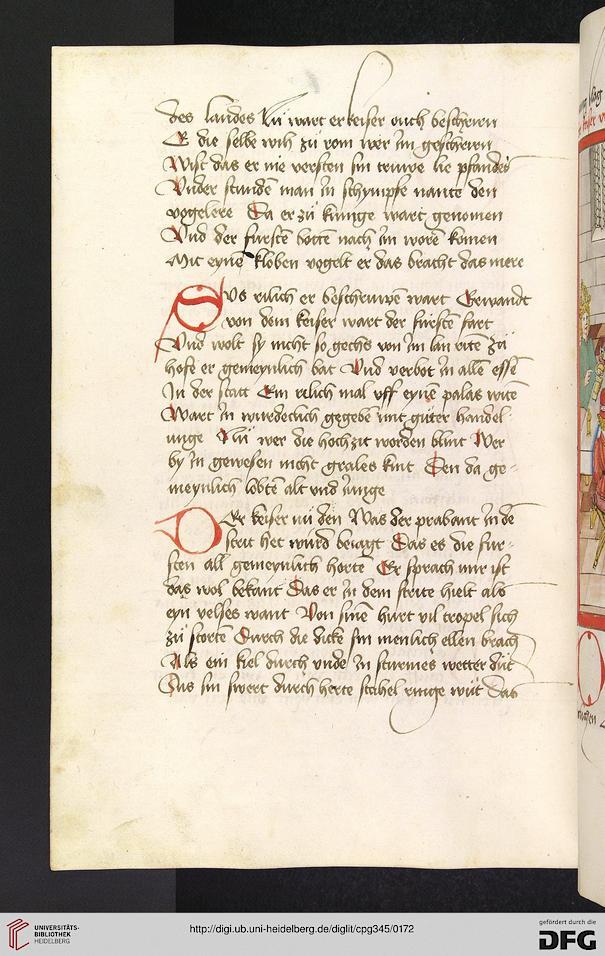 des landes Nü wart er keiser ouch beschriren
E die selbe wih zü rom wer jm geschriren
Wist das er nie versten sin truwe lie pfandes
Vnder stunden man jn schympfe nante den
vogelere Da er zü kunige wart genomen
Vnd der fursten botten nach jm woren komen
Mit eyne kloben vogelt er das bracht das mere
SVs rilich er beschriuwen wart Gewandt
von dem keiser wart der fursten fart
Vnd wolt sy nicht so gechs von jm lan riten zü
hofe er gemeynlich bat Vnd verbot jn allen essē
In der statt Ein rilich mal vff eynē palas wite
Wart jn wurdeclich gegeben mit güter handel
unge Nü wer die hochzit worden blint Wer
by jn gewesen nicht grales kint Den da ge-
meynlich lobten alt vnd junge
DEr keiser nü den Was der prabant jn dē
streit het wurd beiagt Das es die fur-
sten all gemeynlich horten Er sprach mir ist
das wol bekant Das er jn dem strite hielt als
eyn velses want Von sinē hurt vil tropel sich
zü storte Durch die dicke sin menlich ellen brach
Als ein kiel durch vnde jn sturmes wetter düt
Sus sin swert durch herte stahel ringe wüt Das
UNIVERSITÄTS-
BIBLIOTHEK
HEIDELBERG
http://digi.ub.uni-heidelberg.de/diglit/cpg345/0172
gefördert durch die
DFG